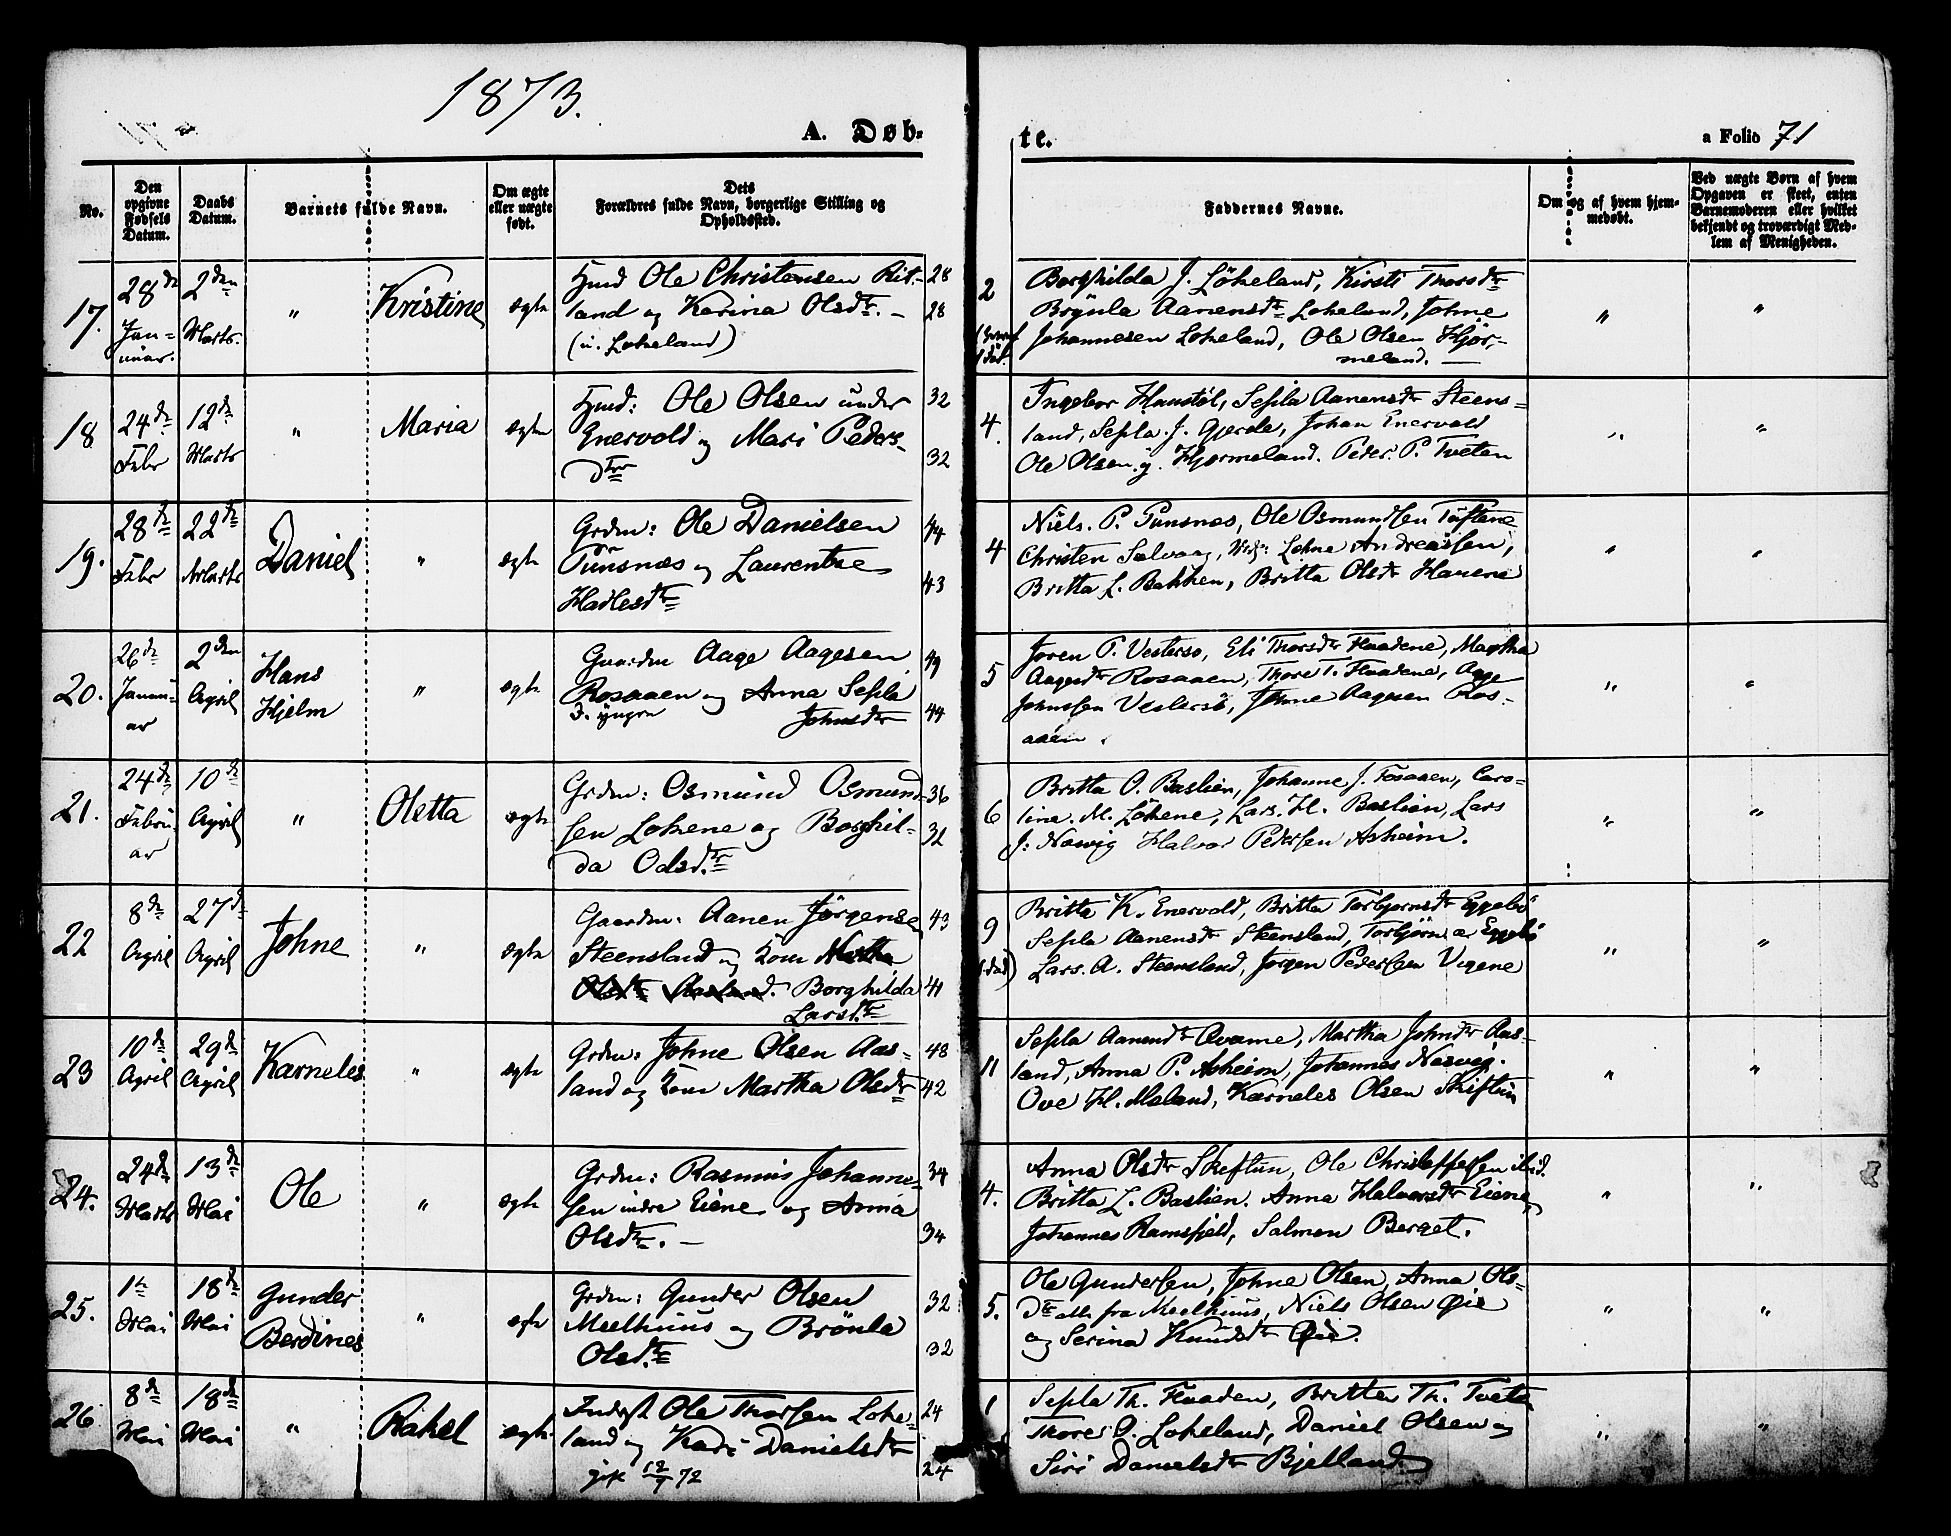 1873.
A. Døb-
te.
a Folio 71
No.
Den opgivne Fødsels Datum.
Daabs Datum.
Barnets fulde Navn.
Om ægte eller uægte født.
Dets Forældres fulde Navn, borgerlige Stilling og Opholdssted.
Faddernes Navne.
Om og af hvem hjemmedøbt.
Ved uægte Børn af hvem Opgaven er skeet, enten Barnemoderen eller hvilket bekjendt og troværdigt Medlem af Menigheden.
17.
28de Januar.
2den Marts.
"
Kristine
ægte
Huusmd Ole Christensen Rit- 28
land og Karina Olsdtr. – 28
(u. Lokeland)
2
Borghilda J. Lökeland, Kirsti Thorsdtr
Brynla Aanensdtr Lokeland, Johne
Johannesen Lokeland, Ole Olsen Hjör-
meland. –
"
"
18
24de Febr
12de Marts
"
Maria
ægte
Huusmd: Ole Olsen under 32
Enervold og Mari Peders- 32
dtr
4.
Ingebor Haustöl, Sesla Aanensdtr Steens=
land, Sesla J. Gjerde, Johan Enervold
Ole Olsen y. Hjormeland. Peder P. Tveten
"
"
19.
28de Febr
22de Marts
Daniel
"
ægte
Grdm: Ole Danielsen 44
Tunsnæs og Laurentse 43
Hadlesdtr
4
Niels. P. Tunsnes, Ole Osmundsen Tuftene
Christen Selvaag, Lohne Andreassen,
Britta L. Bakken, Britta Olsdtr Hauene
"
"
20.
26de Januar
2den April
Hans
Hjelm
"
ægte
Gaardm Aage Aagesen 49
Rosaaen og Anna Sesla
3. yngre Johnsdtr 44
5
Joren P. Vestersø, Eli Thorsdtr Haadene, Martha
Aagesdtr Rosaaen, Thore T. Haadene, Aage
Johnssen Vestersö, Johne Aagesen Ros-
aaen.
"
"
21.
24de Februar
10de April
"
Oletta
ægte
Grdm: Osmund Osmund- 36
sen Lohene og Borghil- 31
da Odsdtr.
6
Britta O. Bastien, Johanne J. Fosaaen, Caro-
line. M. Löhene, Lars. H. Bastien, Lars
J: Narvig Halvor Pedersen Asheim.
"
"
22
8de April
27de April
Johne
"
ægte
Gaardm: Aanen Jörgensen 43
Steensland og Kone Martha
Olsdtr Aasland. Borghilda 41
Larsdtr.
9
Britta K. Enervold, Britta Torbjørnsdtr Eggebö
Sesla Aanensdtr Steensland, Torbjörn Eggebö
Lars. A. Steensland, Jørgen Pedersen Vigene
"
"
23
10de April
29de April
Karneles
"
ægte
Grdm: Johne Olsen Aas- 48
land og Kone Martha Olsdtr 42
11
Sesla Aanensdtr Qvame, Martha Johnsdtr Aas-
land, Anna P. Asheim, Johannes Nasvig.
Ove H. Meland, Karneles Olsen Skiftun
"
"
24.
24de Marts
13de Mai
Ole
"
ægte
Grdm: Rasmus Johanne- 34
sen indre Eiene og Anna
Olsdtr. – 34
4.
Anna Olsdtr Skiftun, Ole Christoffersen ibid.
Britta L. Bastien. Anna Halvorsdtr Eiene
Johannes Ramsfjeld, Salmon Berget.
"
"
25.
1te Mai
18de Mai
Gunder
Berdines
"
ægte
Grdm: Gunder Olsen 32
Meelhuus og Brönla
Olsdtr. 32
5.
Ole Gundersen, Johne Olsen, Anna Ols-
dtr alle fra Meelhuus, Niels Olsen Øie
og Serina Knudsdtr Øie.
"
"
26
8de Mai
18de Mai
"
Rakel
ægte
Inderst Ole Thorsen Loke- 24
land og Kari Danielsdtr
gift 12/7 72 24
1
Sesla Th. Haaden, Britta Th. Tveta
Thore O. Lokeland, Daniel Olsen og
Siri Danielsdtr Bjelland
"
"